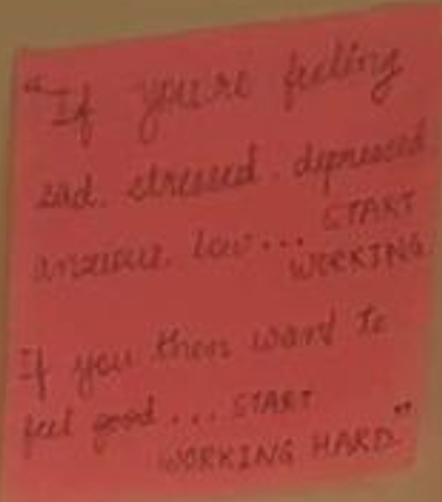 "If you're feeling
sad, stressed, depressed,
anxious, low... START
WORKING.
If you then want to
feel good... START
WORKING HARD."